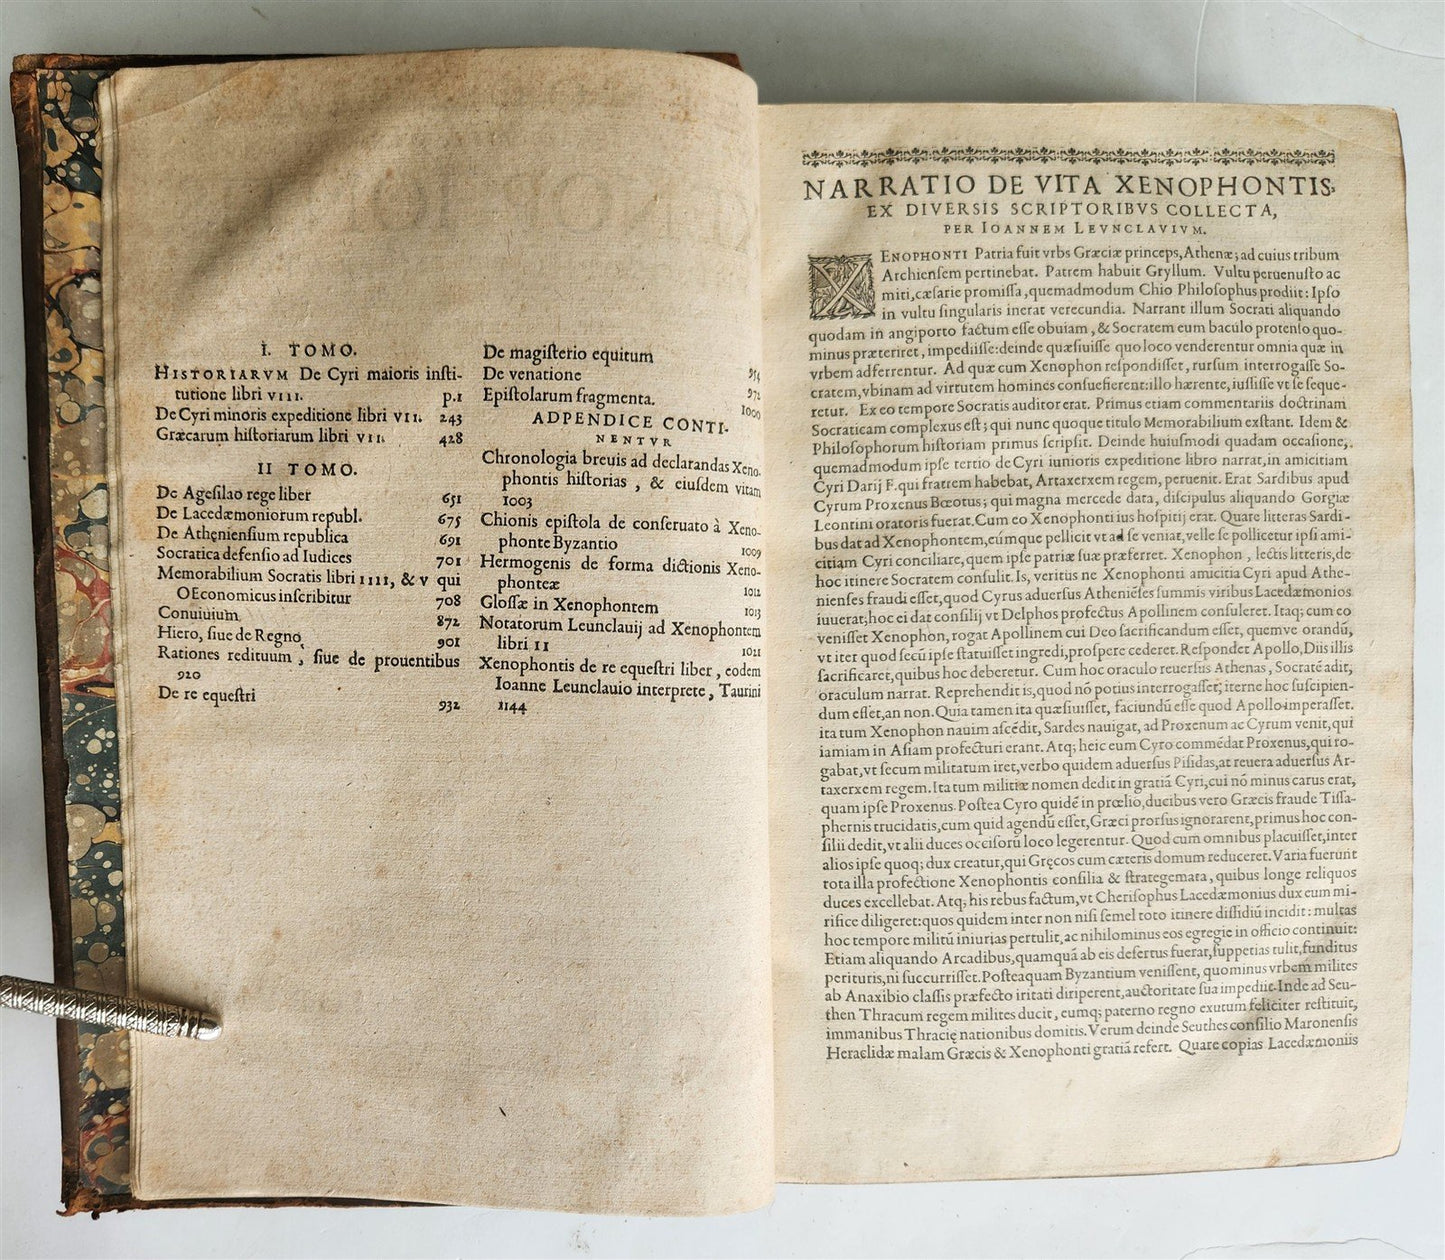 I. TOMO.
HISTORIARVM De Cyri maioris insti-
tutione libri VIII. p.1
De Cyri minoris expeditione libri VII. 243
Græcarum historiarum libri VII. 428
II TOMO.
De Agesilao rege liber 651
De Lacedæmoniorum republ. 675
De Athęniensium republica 691
Socratica defensio ad Iudices 701
Memorabilium Socratis libri IIII, & V qui
OEconomicus inscribitur 708
Conuiuium 872
Hiero, siue de Regno 901
Rationes redituum, siue de prouentibus
920
De re equestri 932
De magisterio equitum 954
De venatione 972
Epistolarum fragmenta. 1000
ADPENDICE CONTI-
NENTVR
Chronologia breuis ad declarandas Xeno-
phontis historias, & eiusdem vitam
1003
Chionis epistola de conseruato à Xeno-
phonte Byzantio 1009
Hermogenis de forma dictionis Xeno-
phonteæ 1012
Glossæ in Xenophontem 1013
Notatorum Leunclauij ad Xenophontem
libri II 1021
Xenophontis de re equestri liber, eodem
Ioanne Leunclauio interprete, Taurini
1144
NARRATIO DE VITA XENOPHONTIS,
EX DIVERSIS SCRIPTORIBVS COLLECTA,
PER IOANNEM LEVNCLAVIVM.
XENOPHONTI Patria fuit vrbs Græciæ princeps, Athenæ; ad cuius tribum
Archiensem pertinebat. Patrem habuit Gryllum. Vultu peruenusto ac
miti, cæsarie promissa, quemadmodum Chio Philosophus prodiit: Ipso
in vultu singularis inerat verecundia. Narrant illum Socrati aliquando
quodam in angiporto factum esse obuiam, & Socratem eum baculo protento quo-
minus præteriret, impediisse: deinde quæsiuisse quo loco venderentur omnia quæ in
vrbem adferrentur. Ad quæ cum Xenophon respondisset, rursum interrogasse So-
cratem, vbinam ad virtutem homines consuefierent: illo hærente, iussisse vt se seque-
retur. Ex eo tempore Socratis auditor erat. Primus etiam commentariis doctrinam
Socraticam complexus est; qui nunc quoque titulo Memorabilium exstant. Idem &
Philosophorum historiam primus scripsit. Deinde huiusmodi quadam occasione,
quemadmodum ipse tertio de Cyri iunioris expeditione libro narrat, in amicitiam
Cyri Darij F. qui fratrem habebat, Artaxerxem regem, peruenit. Erat Sardibus apud
Cyrum Proxenus Bœotus; qui magna mercede data, discipulus aliquando Gorgiæ
Leontini oratoris fuerat. Cum eo Xenophonti ius hospitij erat. Quare litteras Sardi-
bus dat ad Xenophontem, eúmque pellicit vt ad se veniat, velle se pollicetur ipsi ami-
citiam Cyri conciliare, quem ipse patriæ suæ præferret. Xenophon, lectis litteris, de
hoc itinere Socratem consulit. Is, veritus ne Xenophonti amicitia Cyri apud Athe-
nienses fraudi esset, quod Cyrus aduersus Atheniēses summis viribus Lacedæmonios
iuuerat; hoc ei dat consilij vt Delphos profectus Apollinem consuleret. Itaq; cum eo
venisset Xenophon, rogat Apollinem cui Deo sacrificandum esset, quemve orandū,
vt iter quod secū ipse statuisset ingredi, prospere cederet. Respondet Apollo, Diis illis
sacrificaret, quibus hoc deberetur. Cum hoc oraculo reuersus Athenas, Socratē adit,
oraculum narrat. Reprehendit is, quod nō potius interrogasset; iterne hoc suscipien-
dum esset, an non. Quia tamen ita quæsiuisset, faciundū esse quod Apollo imperasset.
ita tum Xenophon nauim ascēdit, Sardes nauigat, ad Proxenum ac Cyrum venit, qui
iamiam in Asiam profecturi erant. Atq; heic eum Cyro commēdat Proxenus, qui ro-
gabat, vt secum militatum iret, verbo quidem aduersus Pisidas, at reuera aduersus Ar-
taxerxem regem. Ita tum militiæ nomen dedit in gratiā Cyri, cui nō minus carus erat,
quam ipse Proxenus. Postea Cyro quidē in prœlio, ducibus vero Græcis fraude Tissa-
phernis trucidatis, cum quid agendū esset, Græci prorsus ignorarent, primus hoc con-
silii dedit, vt alii duces occisorū loco legerentur. Quod cum omnibus placuisset, inter
alios ipse quoq; dux creatur, qui Gręcos cum cæteris domum reduceret. Varia fuerunt
tota illa profectione Xenophontis consilia & strategemata, quibus longe reliquos
duces excellebat. Atq; his rebus factum, vt Cherisophus Lacedæmonius dux eum mi-
rifice diligeret: quos quidem inter non nisi semel toto itinere dissidiū incidit: multas
hoc tempore militū iniurias pertulit, ac nihilominus eos egregie in officio continuit:
Etiam aliquando Arcadibus, quamquā ab eis desertus fuerat, suppetias tulit, funditus
perituris, ni succurrisset. Posteaquam Byzantium venissent, quominus vrbem milites
ab Anaxibio classis præfecto iritati diriperent, auctoritate sua impediit. Inde ad Seu-
then Thracum regem milites ducit, eumq; paterno regno exutum feliciter restituit,
immanibus Thracię nationibus domitis. Verum deinde Seuthes consilio Maronensis
Heraclidæ malam Græcis & Xenophonti gratiā refert. Quare copias Lacedæmoniis